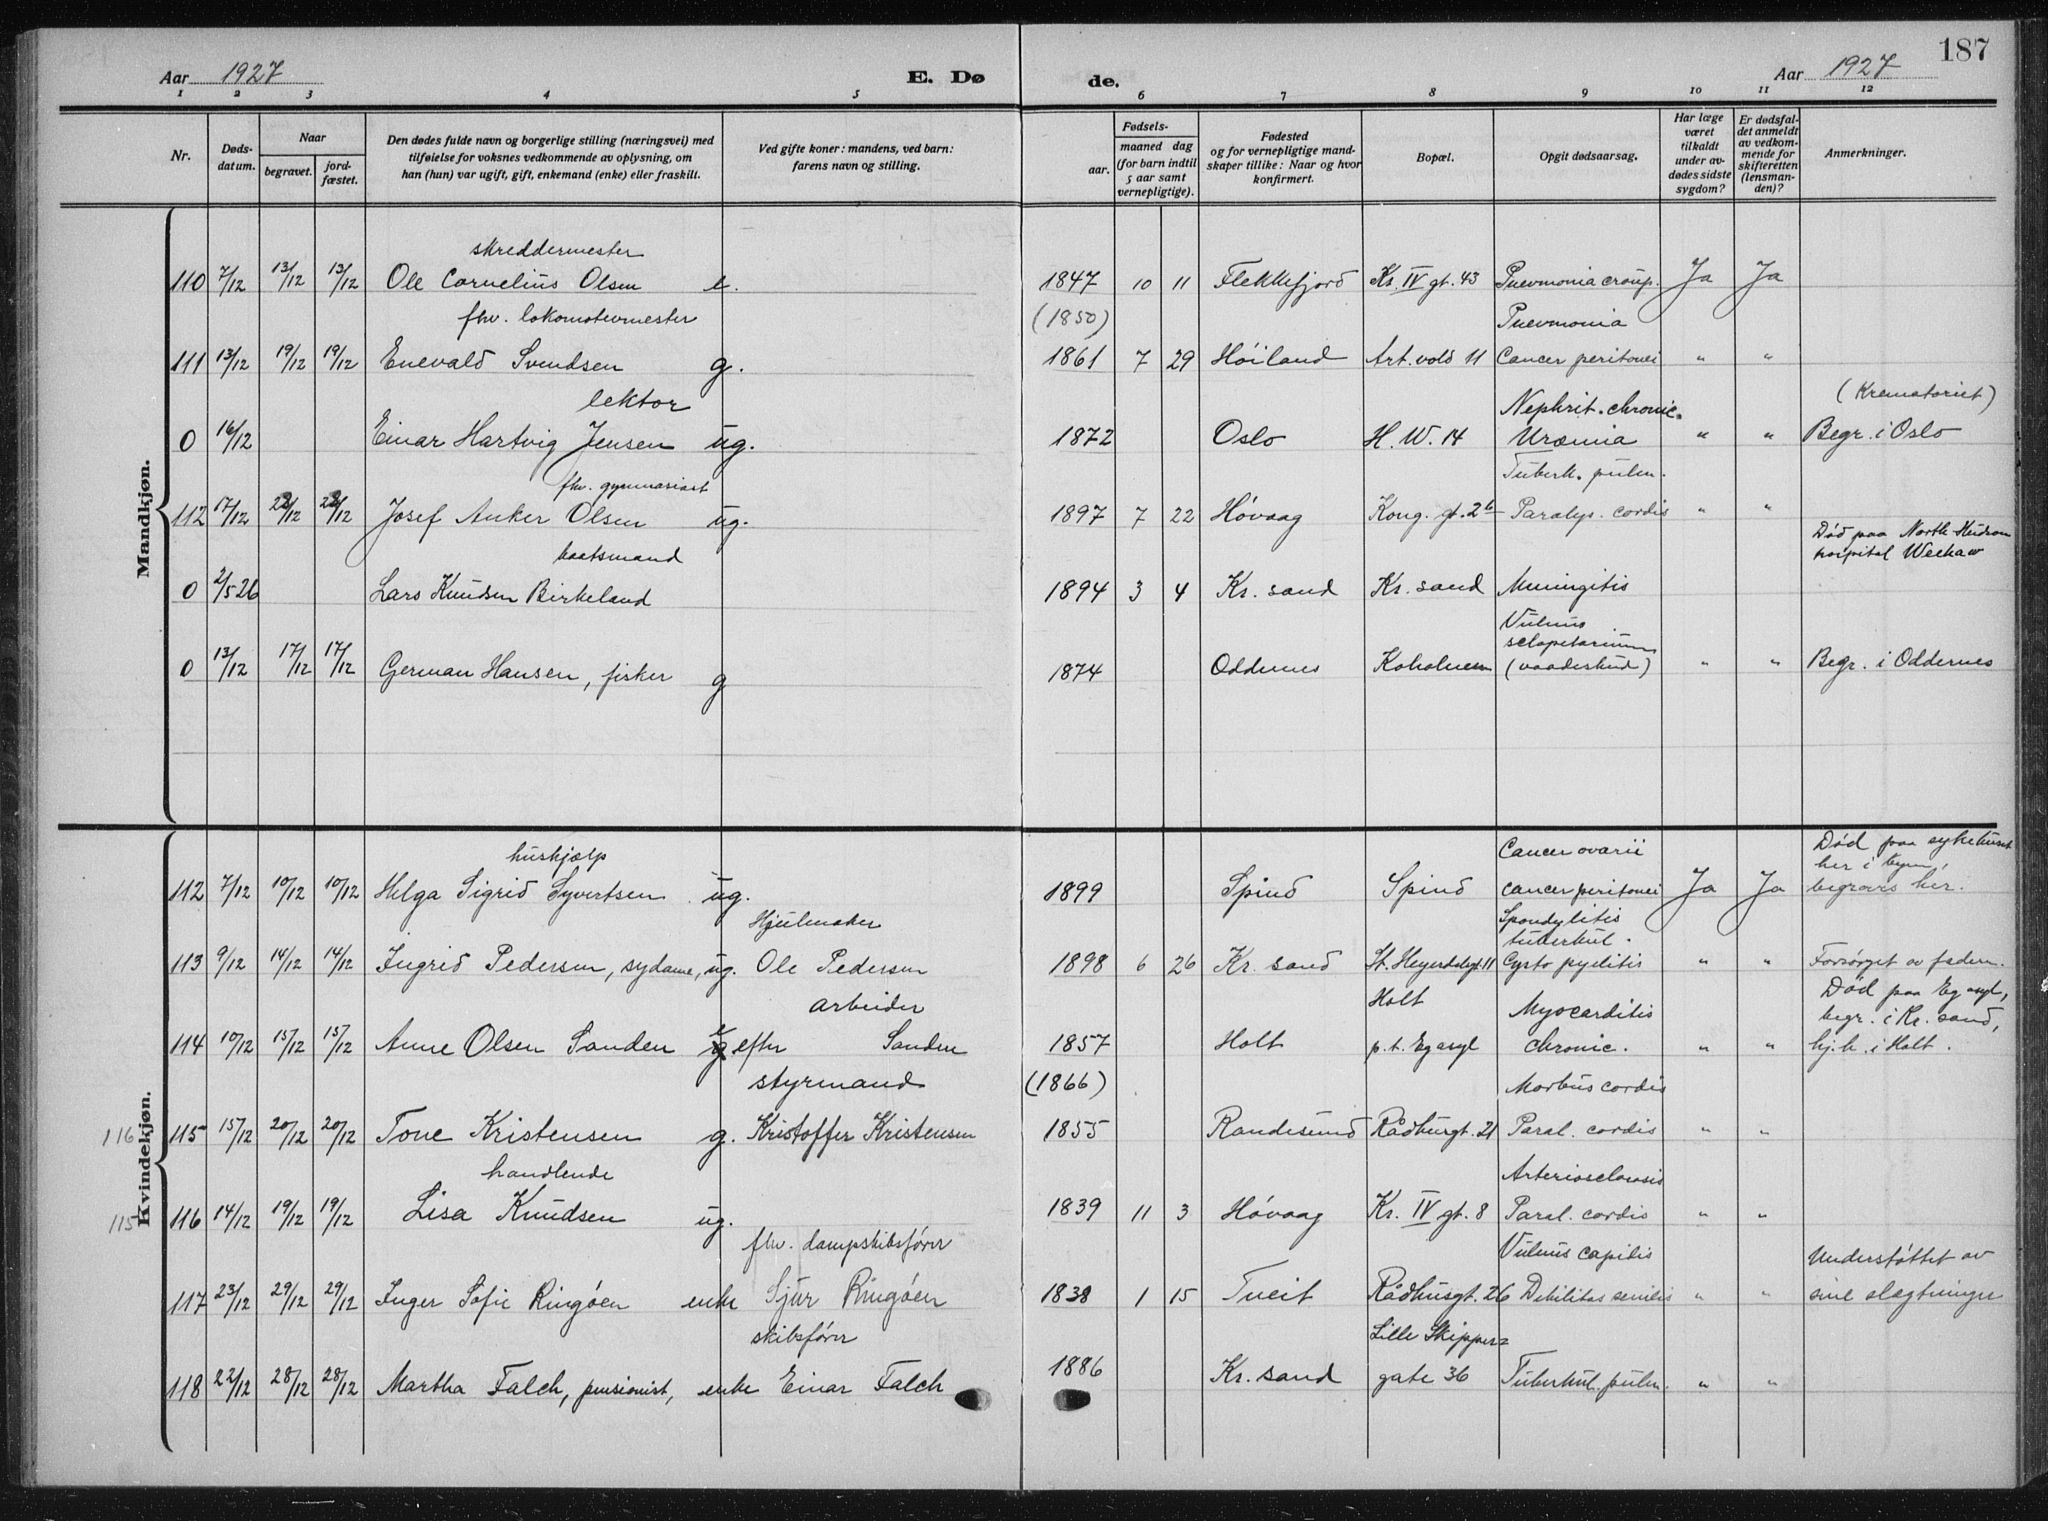 187
Aar 1927
E. Dø
de.
Aar 1927
1 2 3 4 5 6 7 8 9 10 11 12
Nr.
Døds-
datum.
Naar
begravet.
jord-
fæstet.
Den dødes fulde navn og borgerlige stilling (næringsvei) med
tilføielse for voksnes vedkommende av oplysning, om
han (hun) var ugift, gift, enkemand (enke) eller fraskilt.
Ved gifte koner: mandens, ved barn:
farens navn og stilling.
Fødsels-
aar.
maaned dag
(for barn indtil
5 aar samt
vernepligtige).
Fødested
og for vernepligtige mand-
skaper tillike: Naar og hvor
konfirmert.
Bopæl.
Opgit dødsaarsag.
Har læge
været
tilkaldt
under av-
dødes sidste
sygdom?
Er dødsfal-
det anmeldt
av vedkom-
mende for
skifteretten
(lensman-
den)?
Anmerkninger.
Mandkjøn.
skreddermester
110 7/12 13/12 13/12 Ole Cornelius Olsen e. 1847 10 11 Flekkefjord Kr. IV gt. 43 Pnevmonia croup. Ja Ja
fhv. lokomotivmester (1850) Pnevmonia
111 13/12 19/12 19/12 Enevald Svendsen g. 1861 7 29 Høiland Art. vold 11 Cancer peritonei " "
lektor Nephrit. chronic. (Krematoriet)
0 16/12 Einar Hartvig Jensen ug. 1872 Oslo H. W. 14 Uræmia " " Begr. i Oslo
fhv. gymnasiast Tuberk. pulm.
112 17/12 22/12 22/12 Josef Anker Olsen ug. 1897 7 22 Høvaag Kong. gt. 26 Paralys. cordis " "
baatsmand Død paa North Hudson
hospital
0 2/5 26 Lars Knudsen Birkeland 1894 3 4 Kr. sand Kr. sand Meningitis
Vulnus
sclopetarium
0 13/12 17/12 17/12 German Hansen, fisker g 1874 Oddernes Koholmen (vaadeskud) " " Begr. i Oddernes
Kvindekjøn.
huskjælp Cancer ovarii Død paa sykehuset
her i byen,
112 7/12 10/12 10/12 Helga Sigrid Syvertsen ug. 1899 Spind Spind cancer peritonei Ja Ja begraves her.
Hjulmaker Spondylitis
tuberkul.
113 9/12 14/12 14/12 Ingrid Pedersen, sydame, ug. Ole Pedersen 1898 6 26 Kr. sand St. Heyerdalsgt. 11 Cysto pyelitis " " Forsørget av faderen.
arbeider Holt Myocarditis Død paa Eg asyl,
begr. i Kr. sand,
114 10/12 15/12 15/12 Anne Olsen Sanden e efter Sanden 1857 Holt p. t. Eg asyl chronic. " " hj. h. i Holt.
styrmand (1866) Morbus cordis
116 115 15/12 20/12 20/12 Tone Kristensen g. Kristoffer Kristensen 1855 Randesund Rådhusgt. 21 Paral. cordis " "
handlende Arteriosclerosis
115 116 14/12 19/12 19/12 Lisa Knudsen ug. 1839 11 3 Høvaag Kr. IV gt. 8 Paral. cordis " "
fhv. dampskibsfører Vulnus capitis Understøttet av
117 23/12 29/12 29/12 Inger Sofie Ringøen enke Sjur Ringøen 1838 1 15 Tveit Rådhusgt. 26 Debilitas senilis " " sine slægtninger
skibsfører Lille Skipper=
118 22/12 28/12 28/12 Martha Falch, pensionist, enke Einar Falch 1886 Kr. sand gate 36 Tuberkul. pulm. " "